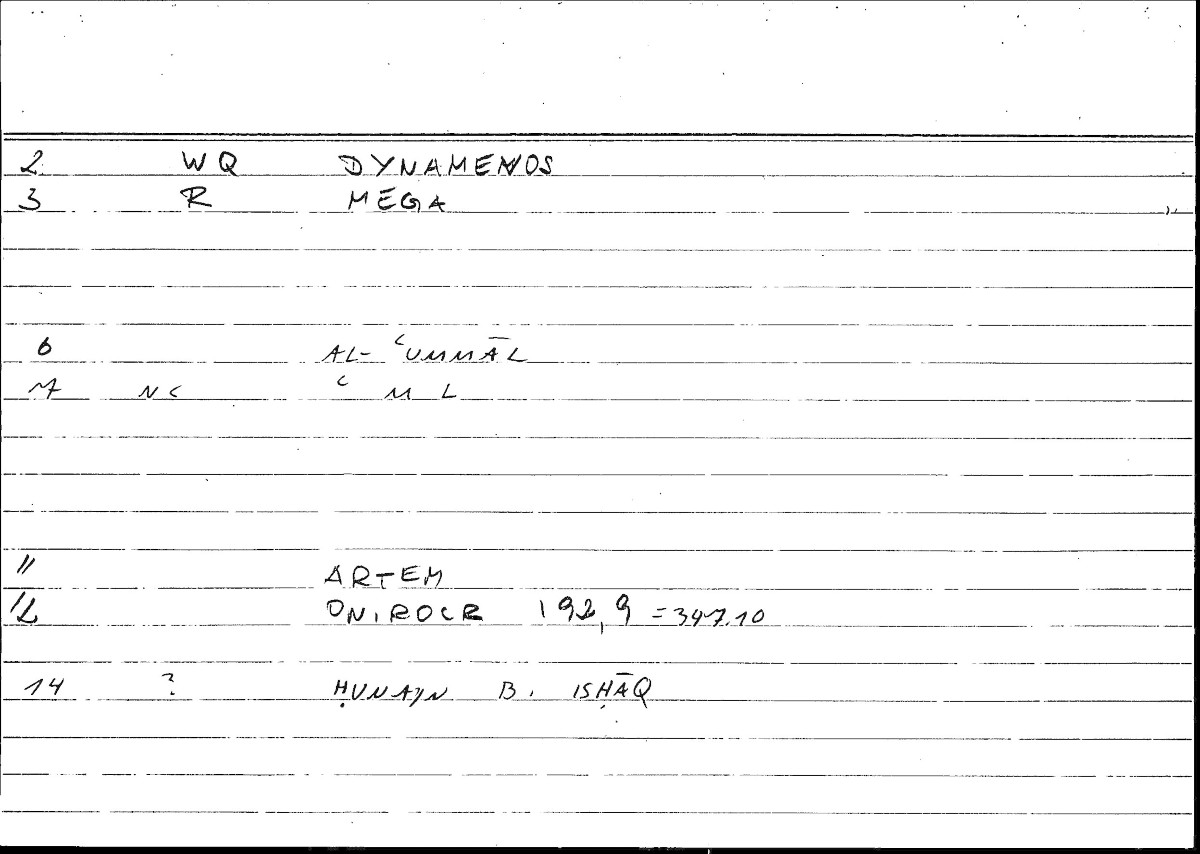 2 WQ DYNAMENOS
3 R MEGA
6 AL- ʿUMMĀL
7 NC ʿ M L
11 ARTEM
12 ONIROCR 192,9 = 347.10
14 ? ḤUNAYN B. ISḤĀQ